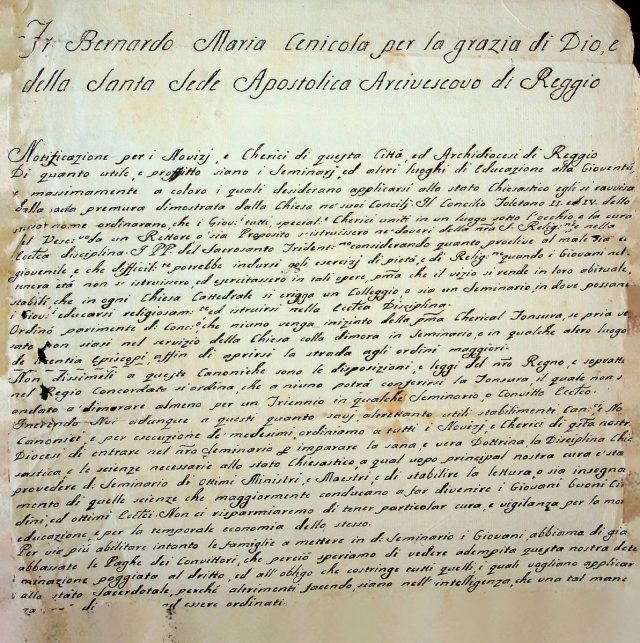 Fr Bernardo Maria Cenicola per la grazia di Dio, e
della Santa Sede Apostolica Arcivescovo di Reggio
Notificazione per i Novizj, e Cherici di questa Città, ed Archidiocesi di Reggio
Di quanto utile, e profitto siano i Seminarj, ed altri luoghi di Educazione alla Gioventù,
e massimamente a coloro i quali desiderano applicarsi allo stato Chiesastico egli si ravvisa
dalla premura dimostrata dalla Chiesa ne' suoi Concilj. Il Concilio Toletano II. ed IV. dello
stess̊o nome ordinarano, che i Giov.i tutti, special.e Cherici uniti in un luogo sotto l'occhio, e la cura
del Vesc.vo da un Rettore o sia Proposito s'istruissero ne' doveri della nr̃a S.ª Relig.ne e nella
Eccľca disciplina. I PP. del Sacrosanto Trident.no considerando quanto proclive al male sia
giovenile, e che difficil.te potrebbe indursi agli esercizj di pietà, e di Relig.ne quando i Giovani nel
tenera età non s'istruissero, ed esercitassero in tali opere, pr̃ma che il vizio si rende in loro abituale,
stabilì, che in ogni Chiesa Cattedrale si erigga un Colleggio, o sia un Seminario, in dove possano
i Giov.i educarsi religiosam.te ed istruirsi nella Eccľca Disciplina.
Ordinò parimente d. Conc.o che niuno venga iniziato della pr̃ma Cherical Tonsura, se pria
non siasi nel servizio della Chiesa colla dimora in Seminario, o in qualche altro luogo
de licentia Episcopi affin di aprirsi la strada agli ordini maggiori.
Non dissimili a queste Canoniche sono le disposizioni, e leggi del nr̃o Regno, e sopratt
nel Regio Concordato si ordina, che a niuno potrà conferirsi la Tonsura, il quale non s
andato a dimorare almeno per un Triennio in qualche Seminario o Convitto Eccľco.
Inerendo Noi adunque a questi quanto savj, altrettanto utili stabilimenti
Canonici, e per esecuzione de' medesimi, ordiniamo a tutti i Novizj, e Cherici di qsta nostr
Diocesi di entrare nel nr̃o Seminario per imparare la sana, e vera Dottrina, la Disciplina Chie
sastica, e le scienze necessarie allo stato Chiesastico a qual uopo principal nostra cura è sta
provedere d. Seminario di Ottimi Ministri, e Maestri, e di stabilire la lettura, o sia insegna
mento di quelle scienze che maggiormente conducano a far devenire i Giovani buoni Citta
dini, ed ottimi Eccľci. Non ci risparmieremo di tener particolar cura, e vigilanza per la mor
educazione, e per la temporale economia dello stesso.
Per vie più abilitare intanto le famiglie a mettere in d. Seminario i Giovani, abbiamo di già
abbassate le Paghe dei Convittori, che perciò speriamo di vedere adempita questa nostra dete
minazione poggiata al dritto, ed all'obligo che costringe tutti quelli, i quali vogliono applicar
allo stato Sacerdotale, perchè altrimenti facendo, siano nell'intelligenza, che una tal mane
za di ed essere ordinati.